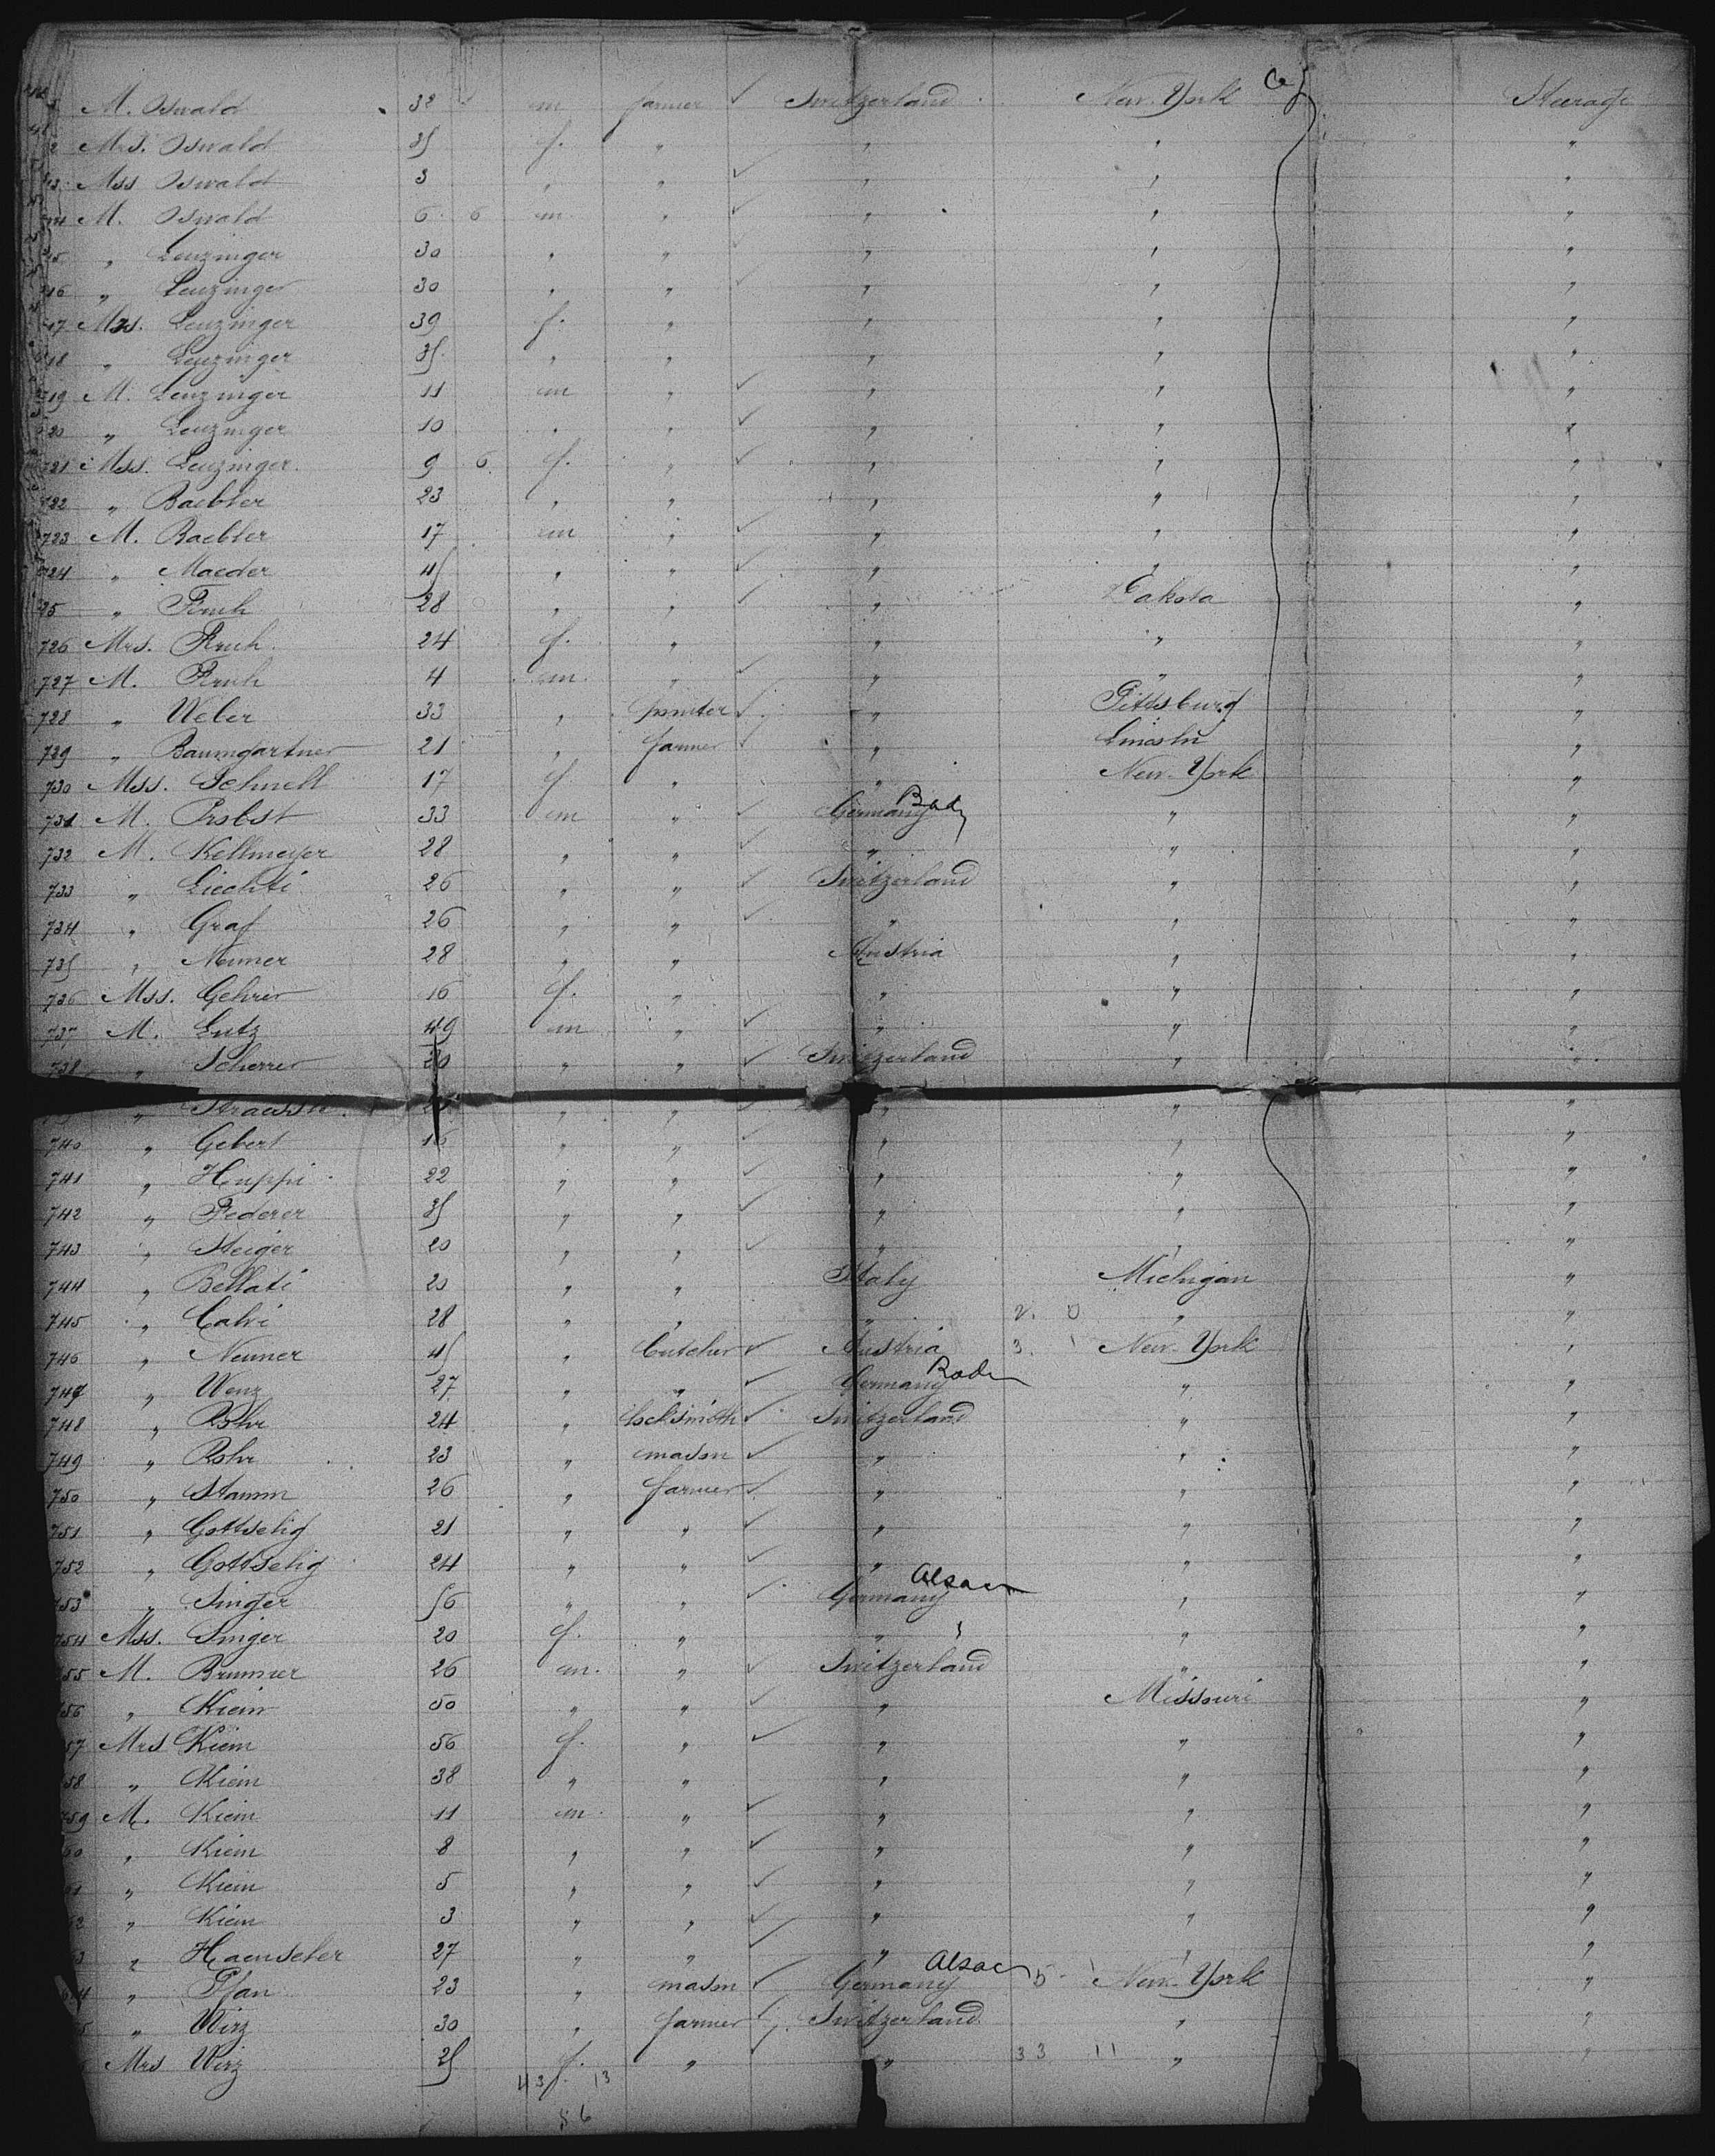 M. Oswald 38 m farmer ✓ Switzerland New. York Steerage
2 Mrs. Oswald 35 f. " " " "
13 Mss Oswald 3 " " ✓ " " "
14 M. Oswald 6 6 m " ✓ " " "
15 " Leuzinger 30 " " " " "
716 " Leuzinger 30 " " " " "
717 Mrs. Leuzinger 39 f. " " " "
718 " Leuzinger 35 " " " " "
719 M. Leuzinger 11 m " ✓ " " "
720 " Leuzinger 10 " " ✓ " " "
721 Mss. Leuzinger 9 6 f. " ✓ " " "
722 " Baebler 23 " " " " "
723 M. Baebler 17 m " ✓ " " "
724 " Maeder 45 " " ✓ " " "
25 " 28 " " ✓ " Dakota "
726 Mrs. 24 f. " " " "
727 M. 4 m. " ✓ " " "
728 " Weber 33 " ✓ " Pittsburg "
729 " Baumgartner 21 " farmer ✓ " Lincoln "
730 Mss. Schnell 17 f " " New. York "
731 M. Probst 33 m " ✓ Germany Bad " "
732 M. Kellmeyer 28 " " ✓ " " "
733 " Liechti 26 " " ✓ Switzerland " "
734 " Graf 26 " " ✓ " " "
735 " 28 " " Austria " "
736 Mss. Gehrer 16 f. " " " "
737 M. Lutz 49 m " ✓ " " "
738 " Scherrer 20 " " ✓ Switzerland " "
" " " ✓ " " "
740 " Gebert 16 " " ✓ " " "
741 " Huppi 22 " " ✓ " " "
742 " Federer 35 " " ✓ " " "
743 " Steiger 20 " " ✓ " " "
744 " Bellati 20 " " Italy Michigan "
745 " Calvi 28 " " " 2. 0 " "
746 " Neuner 45 " butcher ✓ Austria 3. 1 New. York "
747 " Wenz 27 " " ✓ Germany Bade " "
748 " Rohr 24 " locksmith ✓ Switzerland " "
749 " Rohr 23 " mason ✓ " " "
750 " Stamm 26 " farmer ✓ " " "
751 " Gottselig 21 " " ✓ " " "
752 " Gottselig 24 " " ✓ " " "
753 " Singer 56 " " ✓ Germany Alsace " "
754 Mss. Singer 20 f. " " " "
55 M. Brunner 26 m. " ✓ Switzerland " "
56 " Kiem 50 " " ✓ " Missouri "
57 Mrs Kiem 56 f. " ✓ " " "
58 " Kiem 38 " " " " "
759 M. Kiem 11 m. " ✓ " " "
60 " Kiem 8 " " ✓ " " "
61 " Kiem 5 " " ✓ " " "
62 " Kiem 3 " " ✓ " " "
3 " Haenseler 27 " " ✓ " " "
64 " Pfan 23 " mason ✓ Germany Alsac 5 1 New. York "
5 " Wirz 30 " farmer ✓ Switzerland " "
Mrs Wirz 25 f. " ✓ " 33 11 " "
43 13
56